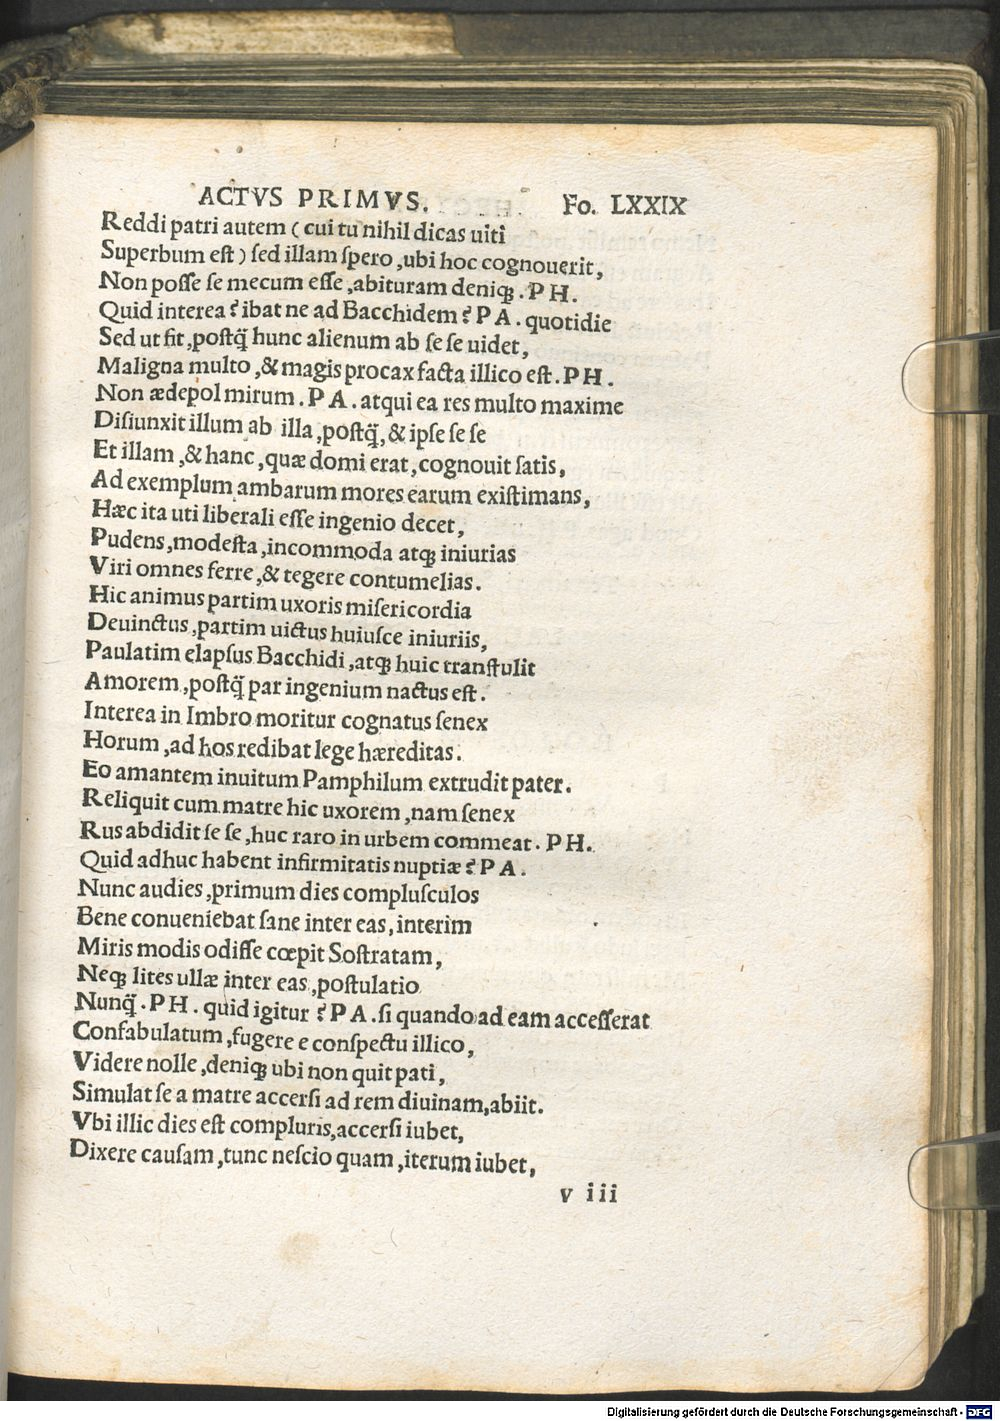 ACTVS PRIMVS. Fo. LXXIX
Reddi patri autem (cui tu nihil dicas uiti
Superbum eſt) ſed illam ſpero, ubi hoc cognouerit,
Non poſſe ſe mecum eſſe, abituram deniqꝫ. PH.
Quid interea? ibat ne ad Bacchidem? PA. quotidie
Sed ut fit, poſtq̃ hunc alienum ab ſe ſe uidet,
Maligna multo, & magis procax facta illico eſt. PH.
Non ædepol mirum. PA. atqui ea res multo maxime
Diſiunxit illum ab illa, poſtq̃, & ipſe ſe ſe
Et illam, & hanc, quæ domi erat, cognouit ſatis,
Ad exemplum ambarum mores earum exiſtimans,
Hæc ita uti liberali eſſe ingenio decet,
Pudens, modeſta, incommoda atqꝫ iniurias
Viri omnes ferre, & tegere contumelias.
Hic animus partim uxoris miſericordia
Deuinctus, partim uictus huiuſce iniuriis,
Paulatim elapſus Bacchidi, atqꝫ huic tranſtulit
Amorem, poſtq̃ par ingenium nactus eſt.
Interea in Imbro moritur cognatus ſenex
Horum, ad hos redibat lege hæreditas.
Eo amantem inuitum Pamphilum extrudit pater.
Reliquit cum matre hic uxorem, nam ſenex
Rus abdidit ſe ſe, huc raro in urbem commeat. PH.
Quid adhuc habent infirmitatis nuptiæ? PA.
Nunc audies, primum dies compluſculos
Bene conueniebat ſane inter eas, interim
Miris modis odiſſe cœpit Soſtratam,
Neqꝫ lites ullæ inter eas, poſtulatio
Nunq̃. PH. quid igitur? PA. ſi quando ad eam acceſſerat
Confabulatum, fugere e conſpectu illico,
Videre nolle, deniqꝫ ubi non quit pati,
Simulat ſe a matre accerſi ad rem diuinam, abiit.
Vbi illic dies eſt compluris, accerſi iubet,
Dixere cauſam, tunc neſcio quam, iterum iubet,
v iii
Digitalisierung gefördert durch die Deutsche Forschungsgemeinschaft - DFG